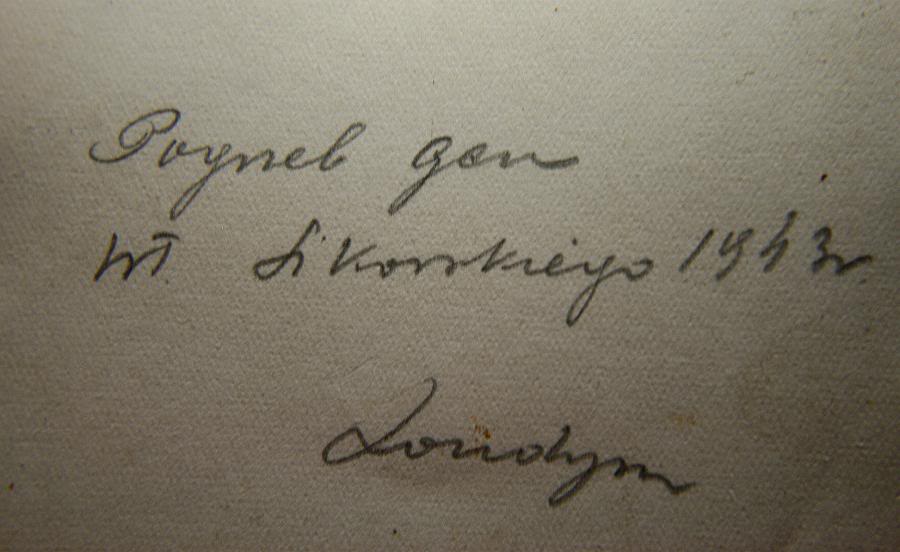 Pogrzeb gen
Wł. Sikorskiego 1943 r.
Londyn